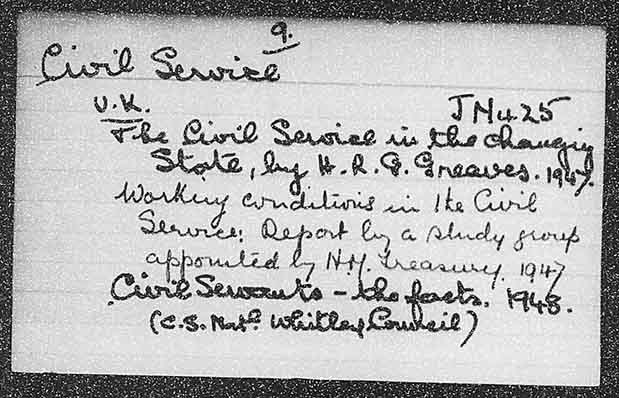 9.
Civil Service
U.K. JN425
The Civil Service in the changing
State, by H. R. G. Greaves. 1947.
Working conditions in the Civil
Service: Report by a study group
appointed by H.M. Treasury. 1947
Civil Servants - the facts. 1948.
(C.S. Natl. Whitley Council)